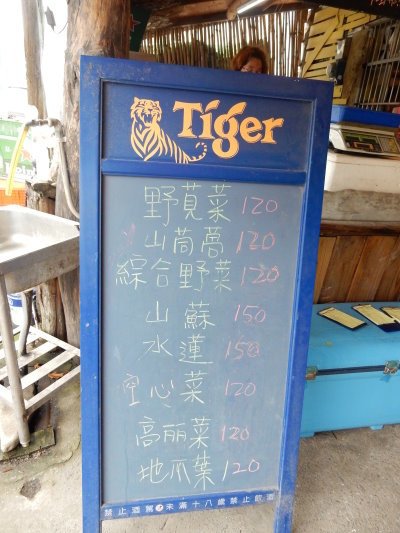 Tiger
野莧菜 120
山茼蒿 120
綜合野菜 120
山蘇 150
水蓮 150
空心菜 120
高丽菜 120
地爪葉 120
禁止酒駕 未滿十八歲禁止飲酒